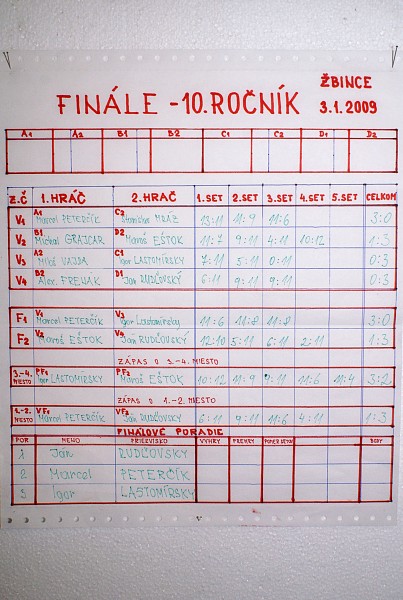 ŽBINCE
FINÁLE - 10. ROČNÍK 3.1.2009
A1 A2 B1 B2 C1 C2 D1 D2
Z.Č 1. HRÁČ 2. HRAČ 1.SET 2.SET 3.SET 4.SET 5.SET CELKOM
V1 A1 Marcel PETERČÍK C2 Stanislav MRÁZ 13:11 11:9 11:6 3:0
V2 B1 Michal GRAJCAR D2 Maroš EŠTOK 11:7 9:11 4:11 10:12 1:3
V3 A2 Miloš VAJDA C1 Igor LASTOMÍRSKY 7:11 5:11 0:11 0:3
V4 B2 Alex. D1 Ján RUDĽOVSKÝ 6:11 9:11 9:11 0:3
F1 V1 Marcel PETERČÍK V3 Igor Lastomírsky 11:6 11:8 11:8 3:0
F2 V2 Maroš EŠTOK V4 Ján RUDĽOVSKÝ 12:10 5:11 6:11 2:11 1:3
ZÁPAS O 3.-4. MIESTO
3.-4. MIESTO PF1 Igor LASTOMÍRSKY PF2 Maroš EŠTOK 10:12 11:9 9:11 11:6 11:4 3:2
ZÁPAS O 1.-2. MIESTO
1.-2. MIESTO VF1 Marcel PETERČÍK VF2 Ján RUDĽOVSKÝ 6:11 9:11 11:6 4:11 1:3
FINÁLOVÉ PORADIE
POR MENO PRIEZVISKO VÝHRY PREHRY POMER SETOV BODY
1 Ján RUDĽOVSKY
2 Marcel PETERČÍK
3 Igor LASTOMÍRSKY